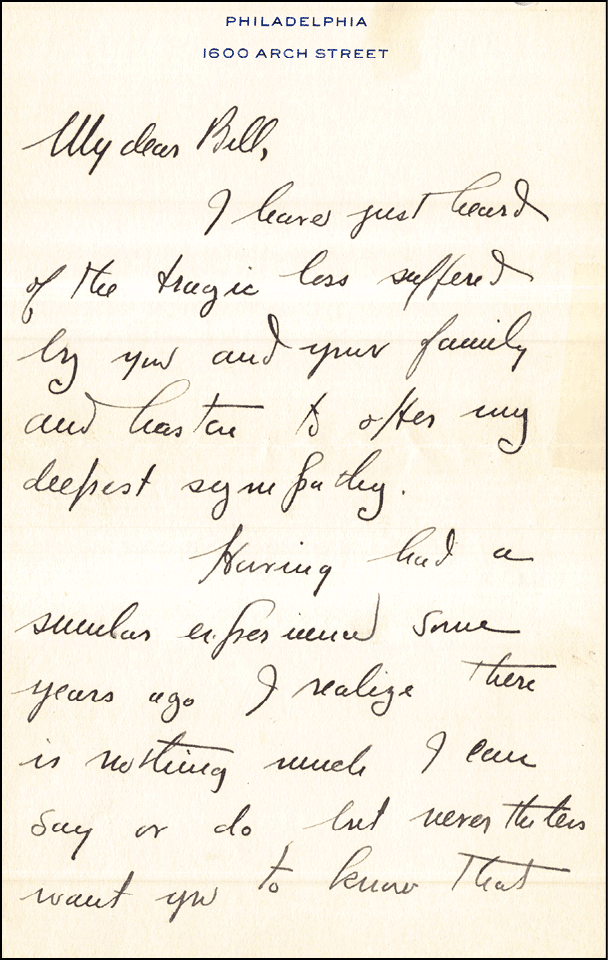 PHILADELPHIA
1600 ARCH STREET
My dear Bill,
I have just heard
of the tragic loss suffered
by you and your family
and hasten to offer my
deepest sympathy.
Having had a
similar experience some
years ago I realize there
is nothing much I can
say or do but nevertheless
want you to know that